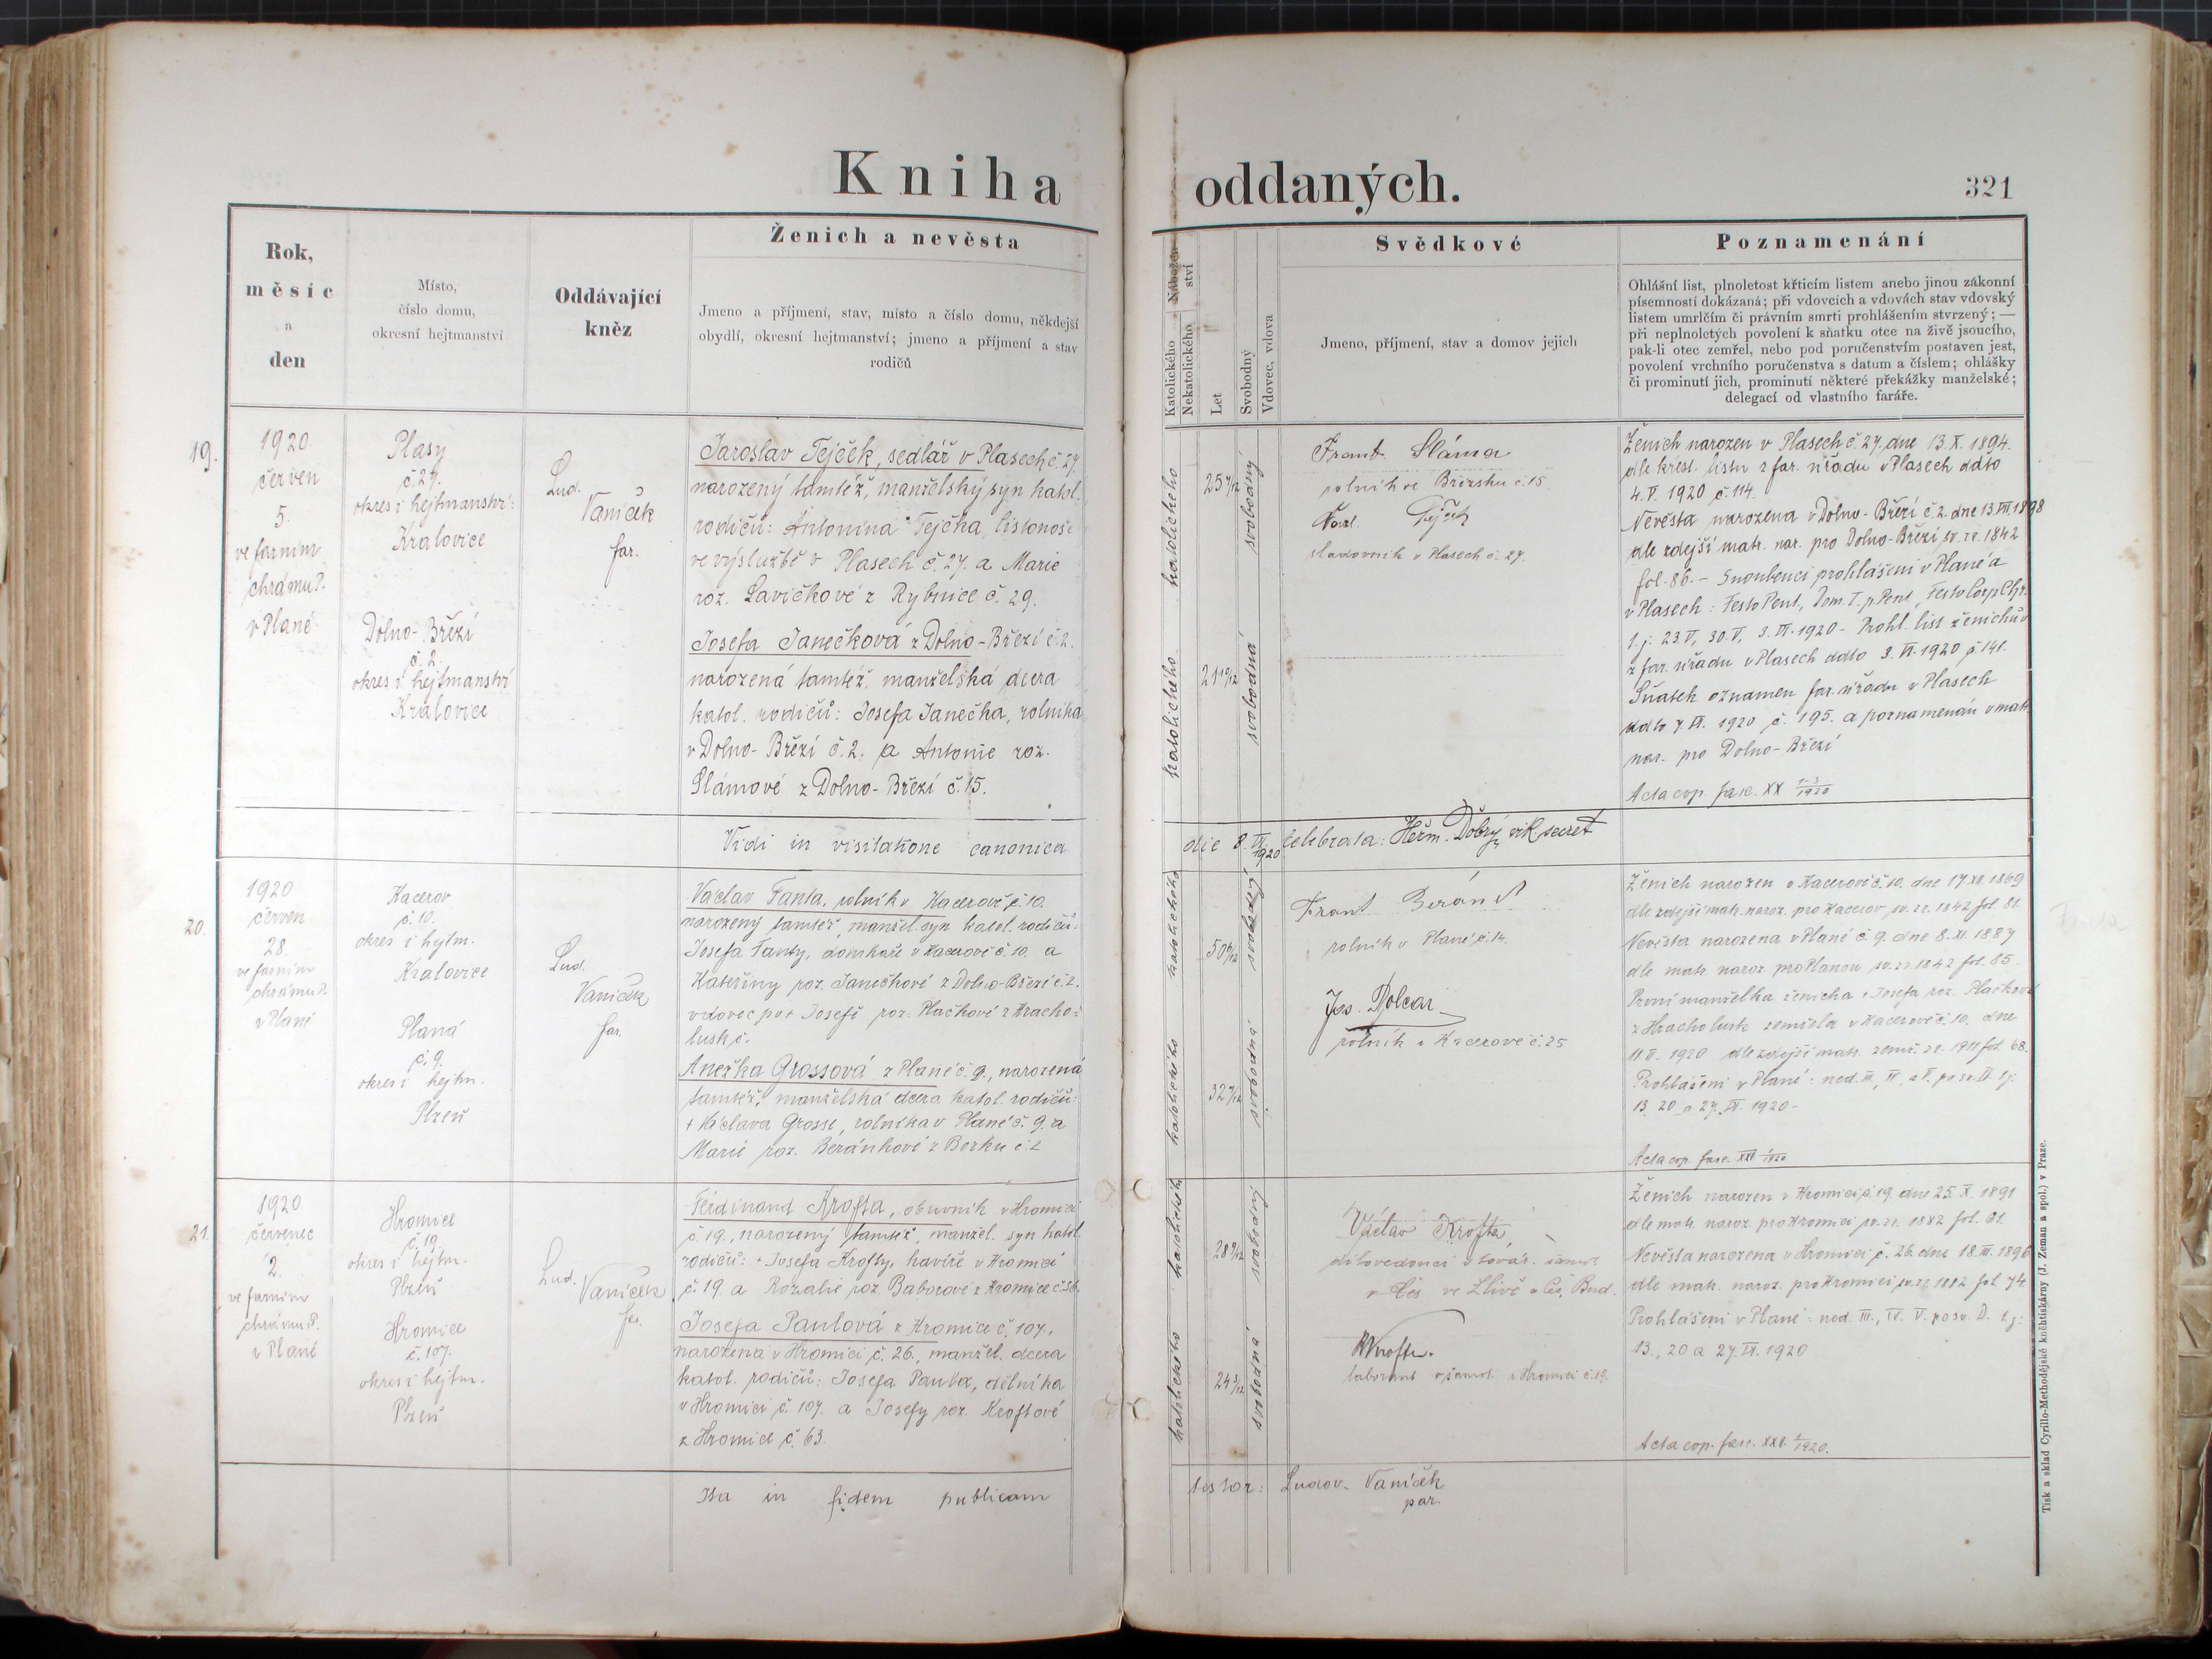 Kniha oddaných.
321
Rok,
měsíc
a
den
Místo,
číslo domu,
okresní hejtmanství
Oddávající
kněz
Ženich a nevěsta
Jmeno a příjmení, stav, místo a číslo domu, někdejší
obydlí, okresní hejtmanství; jmeno a příjmení a stav
rodičů
Nábožen-
ství
Katolického
Nekatolického
Let
Svobodný
Vdovec, vdova
Svědkové
Jmeno, příjmení, stav a domov jejich
Poznamenání
Ohlášní list, plnoletost křticím listem anebo jinou zákonní
písemností dokázaná; při vdovcích a vdovách stav vdovský
listem umrlčím či právním smrti prohlášením stvrzený; —
při neplnoletých povolení k sňatku otce na živě jsoucího,
pak-li otec zemřel, nebo pod poručenstvím postaven jest,
povolení vrchního poručenstva s datum a číslem; ohlášky
či prominutí jich, prominutí některé překážky manželské;
delegací od vlastního faráře.
19.
1920
červen
5.
ve farním
chrámu P.
v Plané
Plasy
č. 27.
okres i hejtmanství:
Kralovice
Dolno-Březí
č. 2.
okres i hejtmanství
Kralovice
Lud.
Vaníček
far.
Jaroslav Tejček, sedlář v Plasech č. 27.
narozený tamtéž, manželský syn katol.
rodičů: Antonína Tejčka, listonoše
ve výslužbě v Plasech č. 27. a Marie
roz. Lavičkové z Rybnice č. 29.
Josefa Janečková z Dolno-Březí č. 2.
narozená tamtéž, manželská dcera
katol. rodičů: Josefa Janečka, rolníka
v Dolno-Březí č. 2. a Antonie roz.
Slámové z Dolno-Březí č. 15.
katolického
katolického
25 7/12
21 10/12
svobodný
svobodná
Frant. Sláma
rolník ve Březsku č. 15.
Tejček
sladovník v Plasech č. 27.
Ženich narozen v Plasech č. 27. dne 13. X. 1894.
dle křest. listu z far. úřadu v Plasech ddto
4. V. 1920 č. 114.
Nevěsta narozena v Dolno-Březí č. 2. dne 13. VII. 1898
dle zdejší matr. nar. pro Dolno-Březí sv. zr. 1842
fol. 86. - Snoubenci prohlášeni v Plané a
v Plasech: Festo Pent., Dom. I. p. Pent., Festo Corp. Chr.
t. j. 23. V., 30. V., 3. VI. 1920 - Prohl. list ženichův
z far. úřadu v Plasech ddto 3. VI. 1920 č. 141.
Sňatek oznámen far. úřadu v Plasech
ddto 7. VI. 1920 č. 195. a poznamenán v matr.
nar. pro Dolno-Březí
Acta cop. fasc. XX 1-3/1920
Vidi in visitatione canonica die 8. VI. 1920 celebrata: Heřm. Dobrý, vik. secret
20.
1920
červen
28.
ve farním
chrámu P.
v Plané
Kacerov
č. 10.
okres i hejtm.
Kralovice
Planá
č. 9.
okres i hejtm.
Plzeň
Lud.
Vaníček
far.
Václav Fanta, rolník v Kacerově č. 10.
narozený tamtéž, manžel. syn katol. rodičů:
Josefa Fanty, domkaře v Kacerově č. 10. a
Kateřiny roz. Janečkové z Dolno-Březí č. 2.
vdovec po † Josefě roz. Plačkové z Hracho-
lusk č.
Anežka Grossová z Plané č. 9., narozená
tamtéž, manželská dcera katol. rodičů:
† Václava Grosse, rolníka v Plané č. 9. a
Marie roz. Beránkové z Borku č. 2
katolického
katolického
50 6/12
32 7/12
svobodný
svobodná
Frant. Beránek
rolník v Plané č. 14.
Jos. Dolcar
rolník v Kacerově č. 25
Ženich narozen v Kacerově č. 10. dne 17. XII. 1869
dle zdejší matr. naroz. pro Kacerov sv. zr. 1842 fol. 81.
Nevěsta narozena v Plané č. 9. dne 8. XI. 1887
dle matr. naroz. pro Planou sv. zr. 1842 fol. 85.
První manželka ženicha † Josefa roz. Plačková
z Hracholusk zemřela v Kacerově č. 10. dne
11. II. 1920 dle zdejší matr. zemř. zr. 1911 fol. 68.
Prohlášeni v Plané: ned. III., IV. a V. po sv. D. t. j:
13. 20. a 27. VI. 1920 -
Acta cop. fasc. XXI 1/1920
21.
1920
červenec
2.
ve farním
chrámu P.
v Plané
Hromice
č. 19
okres i hejtm.
Plzeň
Hromice
č. 107.
okres i hejtm.
Plzeň
Lud.
Vaníček
far.
Ferdinand Krofta, obuvník v Hromici
č. 19., narozený tamtéž, manžel. syn katol.
rodičů: † Josefa Krofty, havíře v Hromici
č. 19 a Rozalie roz. Baborové z Hromice č. 36.
Josefa Paulová z Hromice č. 107.
narozená v Hromici č. 26., manžel. dcera
katol. rodičů: Josefa Paula, dělníka
v Hromici č. 107. a Josefy roz. Kroftové
z Hromice č. 63.
katolického
katolického
28 9/12
24 3/12
svobodný
svobodná
Václav Krofta
ve Zlivě u Čes. Bud.
Krofta.
laborant v Hromici č. 19.
Ženich narozen v Hromici č. 19 dne 25. X. 1891
dle matr. naroz. pro Hromici sv. zr. 1882 fol. 61.
Nevěsta narozena v Hromici č. 26. dne 18. III. 1896
dle matr. naroz. pro Hromici sv. zr. 1882 fol. 74.
Prohlášeni v Plané: ned. III., IV. V. po sv. D. t. j:
13., 20 a 27. VI. 1920
Acta cop. fasc. XXI. 2/1920.
Ita in fidem publicam testor: Ludov. Vaníček
par.
Tisk a sklad Cyrillo-Methodějské knihtiskárny (J. Zeman a spol.) v Praze.